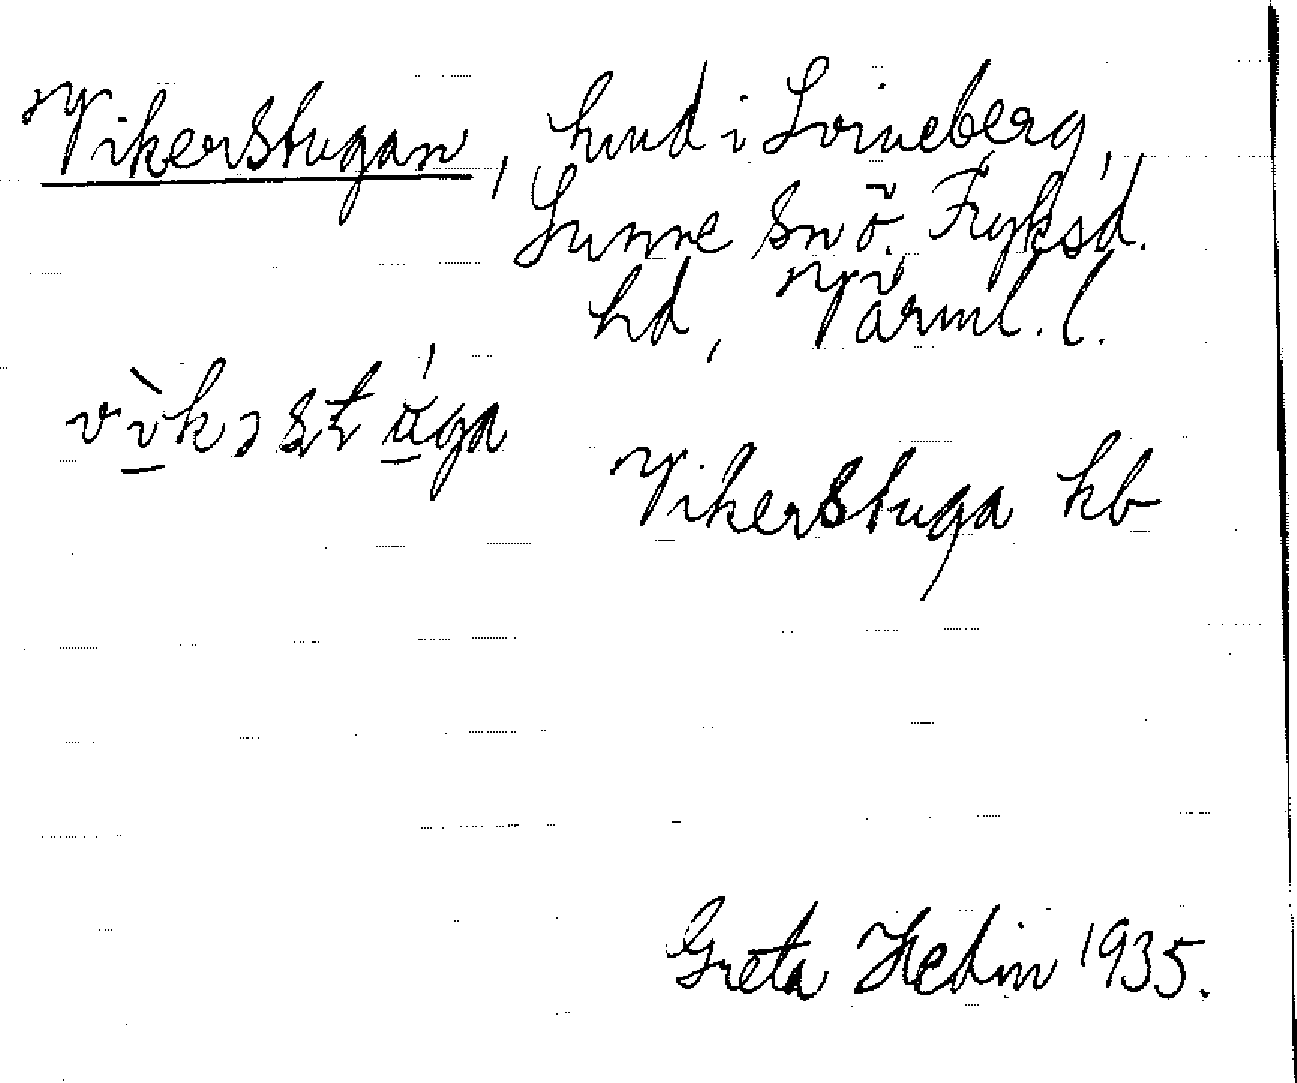 Vikerstugan, hmd i Lövneberg,
Sunne sn ö. Fryksd.
hd, Värml. l.
Vikerstuga kb
Greta Hedin 1935.